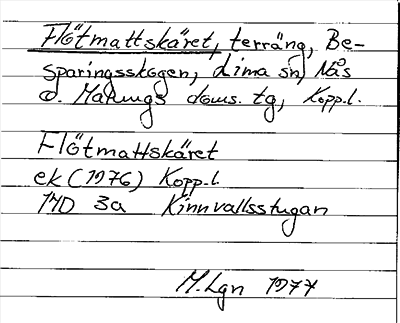 Flötmattskäret, terräng, Be-
sparingsskogen, Lima sn, Nås
o. Malungs doms. tg, Kopp.l.
Flötmattskäret
ek (1976) Kopp.l.
14D 3a Kinnvallsstugan
M.Lgn 1977